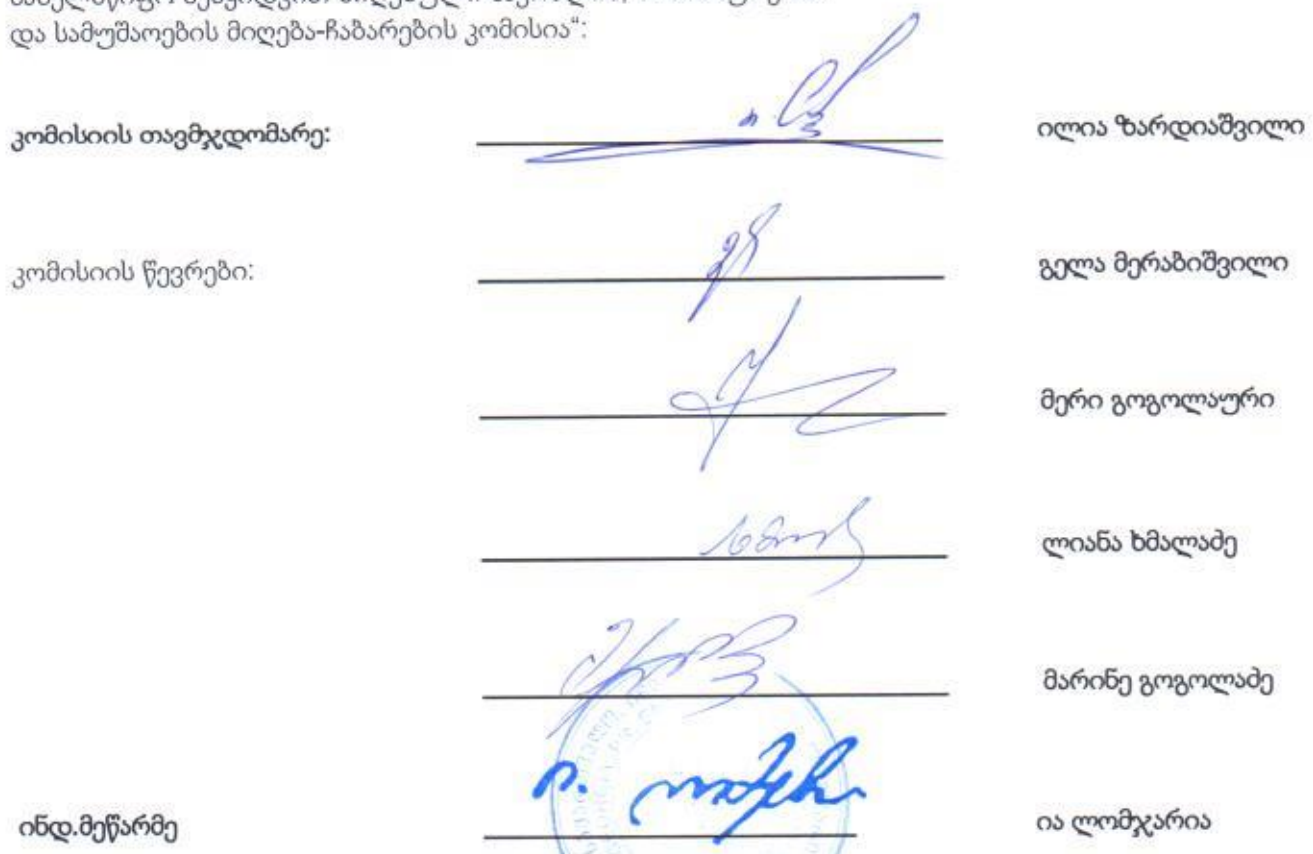 და სამუშაოების მიღება-ჩაბარების კომისია“:
კომისიის თავმჯდომარე: ილია ზარდიაშვილი
კომისიის წევრები: გელა მერაბიშვილი
მერი გოგოლაური
ლიანა ხმალაძე
მარინე გოგოლაძე
ინდ.მეწარმე ია ლომჯარია